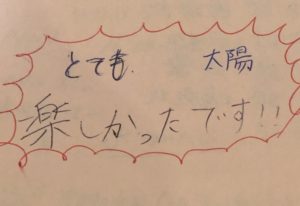 とても. 太陽
楽しかったです!!